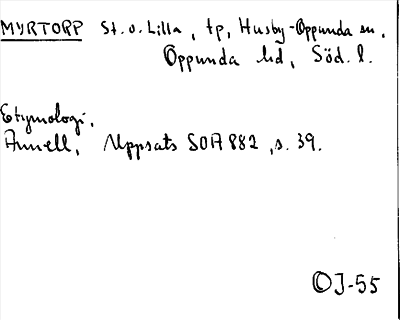 MYRTORP St. o. Lilla, tp, Husby-Oppunda sn,
Oppunda hd, Söd. l.
Etymologi.
Annell, Uppsats SOA 882, s. 39.
OJ-55